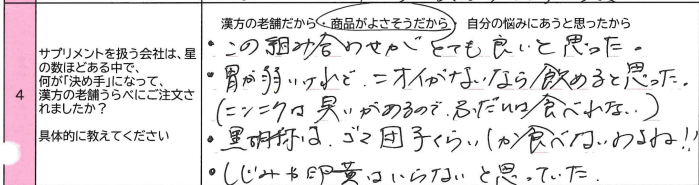 4
サプリメントを扱う会社は、星
の数ほどある中で、
何が「決め手」になって、
漢方の老舗うらべにご注文さ
れましたか？
具体的に教えてください
漢方の老舗だから・商品がよさそうだから・自分の悩みにあうと思ったから
・この組み合わせがとても良いと思った。
・胃が弱いけれど、ニオイがないなら飲めると思った。
(ニンニクは臭いがあるので、ふだんは食べれない。)
・黒胡麻は、ゴマ団子くらいしか食べないわよね!!
・しじみや卵黄はいらないと思っていた。